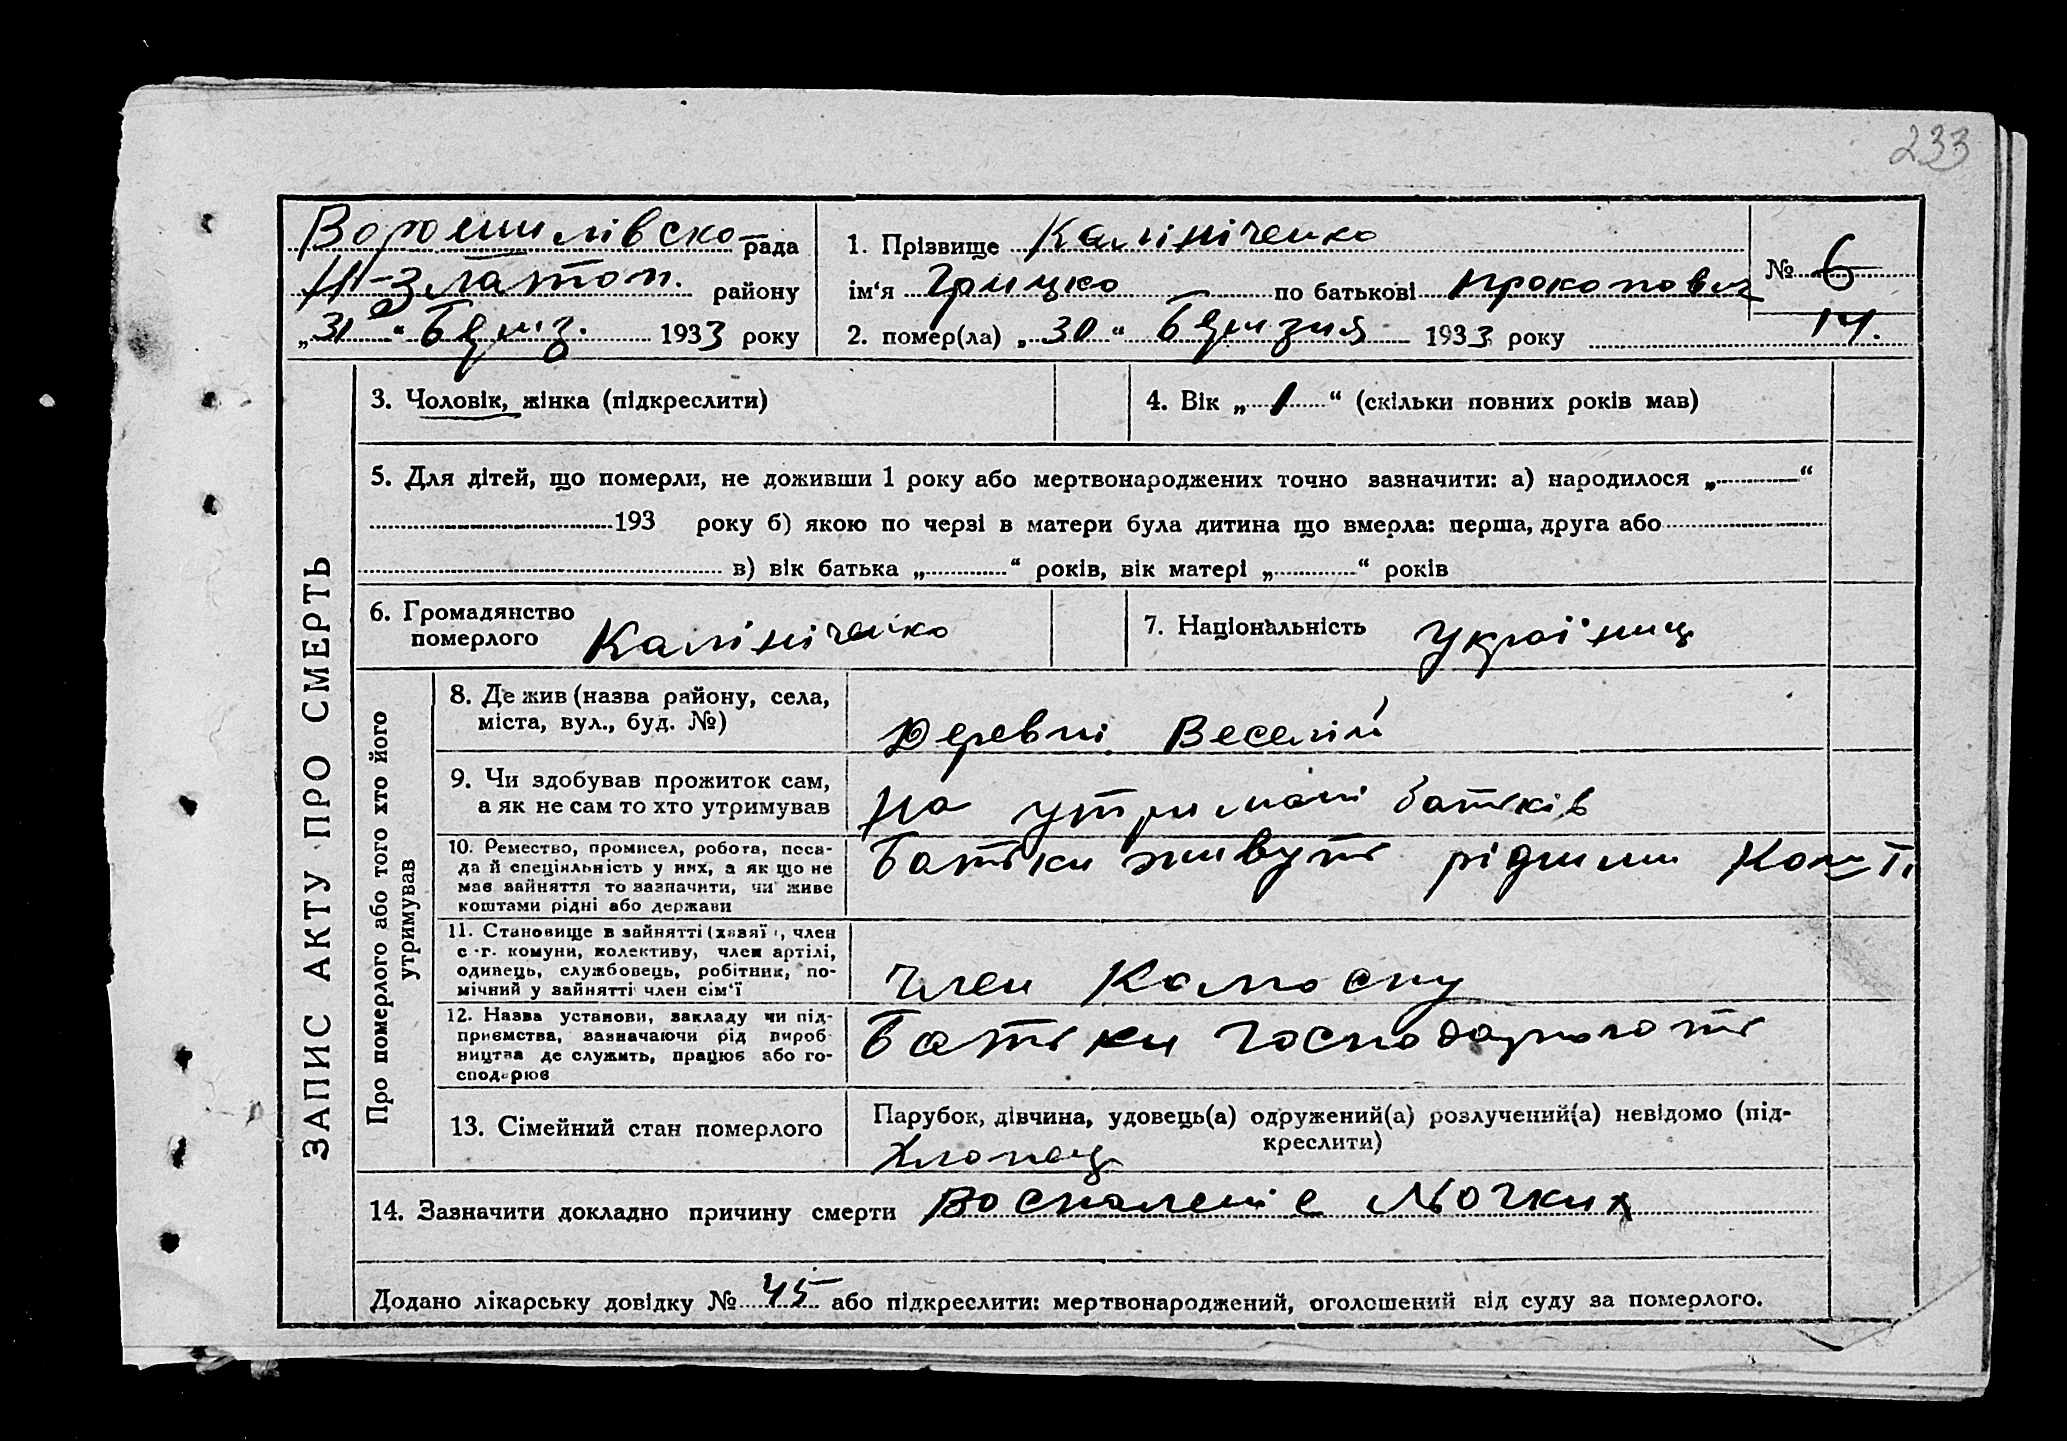 233
Ворошилівско рада
Н-Златоп. району
„31“ Берез. 1933 року
1. Прізвище Калініченко
ім‘я Грицко по батькові Прокопович
2. помер(ла) „30“ Березня 1933 року
№ 6
14.
ЗАПИС АКТУ ПРО СМЕРТЬ
3. Чоловік, жінка (підкреслити)
4. Вік „1“ (скільки повних років мав)
5. Для дітей, що померли, не доживши 1 року або мертвонароджених точно зазначити: а) народилося „ “
193 року б) якою по черзі в матери була дитина що вмерла: перша, друга або
в) вік батька „ “ років, вік матері „ “ років
6. Громадянство
померлого Калініченко
7. Національність Україниц
Про померлого або того хто його
утримував
8. Де жив (назва району, села,
міста, вул., буд. №)
Деревні Веселій
9. Чи здобував прожиток сам,
а як не сам то хто утримував
На утримані батьків
10. Ремество, промисел, робота, поса-
да й спеціяльність у них, а як що не
має зайняття то зазначити, чи живе
коштами рідні або держави
Батьки живуть рідними Кошті
11. Становище в зайнятті (хазяї , член
с.-г. комуни, колективу, член артілі,
одинець, службовець, робітник, по-
мічний у зайнятті член сім‘ї
Член Колгоспу
12. Назва установи, закладу чи під-
приємства, зазначаючи рід вироб-
ництва де служить, працює або го-
сподарює
Батьки
13. Сімейний стан померлого
Парубок, дівчина, удовець(а) одружений(а) розлучений(а) невідомо (під-
креслити)
Хлопец
14. Зазначити докладно причину смерти Воспаленіє льогких
Додано лікарську довідку № 45 або підкреслити: мертвонароджений, оголошений від суду за померлого.